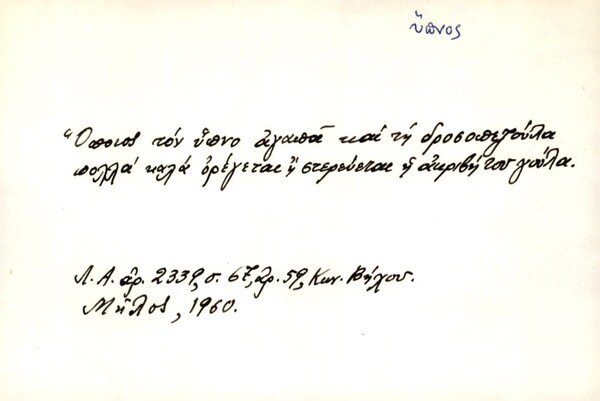 ὕπνος
Ὅποιος τόν ὕπνο ἀγαπᾶ καί τή δροσοπεζούλα
πολλά καλά ὀρέγεται ἤ στερεύεται ἡ ἀκριβή του γούλα.
Λ. Α. ἀρ. 2339, σ. 67, ἀρ. 59, Κων. Βήχου.
Μῆλος, 1960.